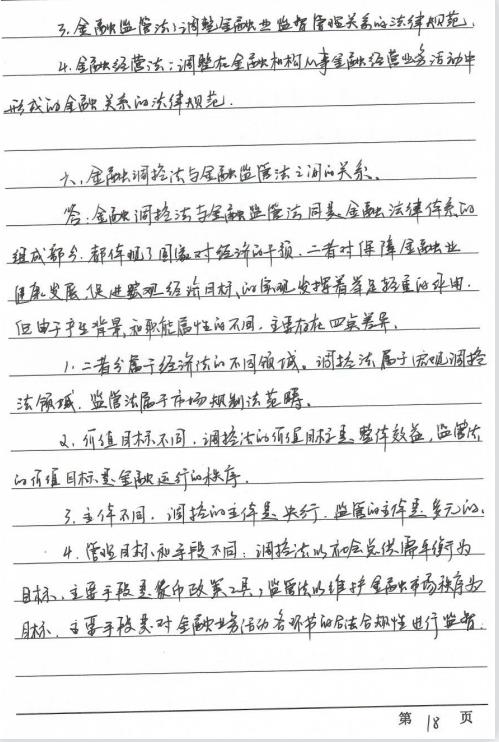 3.金融监管法:调整金融业监督管理关系的法律规范.
4.金融经营法:调整在金融机构从事金融经营业务活动中
形成的金融关系的法律规范.
六、金融调控法与金融监管法之间的关系.
答:金融调控法与金融监管法同是金融法律体系的
组成部分.都体现了国家对经济的干预.二者对保障金融业
健康发展,促进宏观经济目标的实现,发挥着举足轻重的作用.
但由于产生背景和职能属性的不同.主要存在四点差异.
1.二者分属于经济法的不同领域.调控法属于宏观调控
法领域.监管法属于市场规制法范畴.
2.价值目标不同.调控法的价值目标是整体效益,监管法
的价值目标是金融运行的秩序.
3.主体不同.调控的主体是央行.监管的主体是多元的.
4.管理目标和手段不同:调控法以社会总供需平衡为
目标.主要手段是货币政策工具;监管法以维护金融市场秩序为
目标.主要手段是对金融业务活动各环节的合法合规性进行监督.
第 18 页